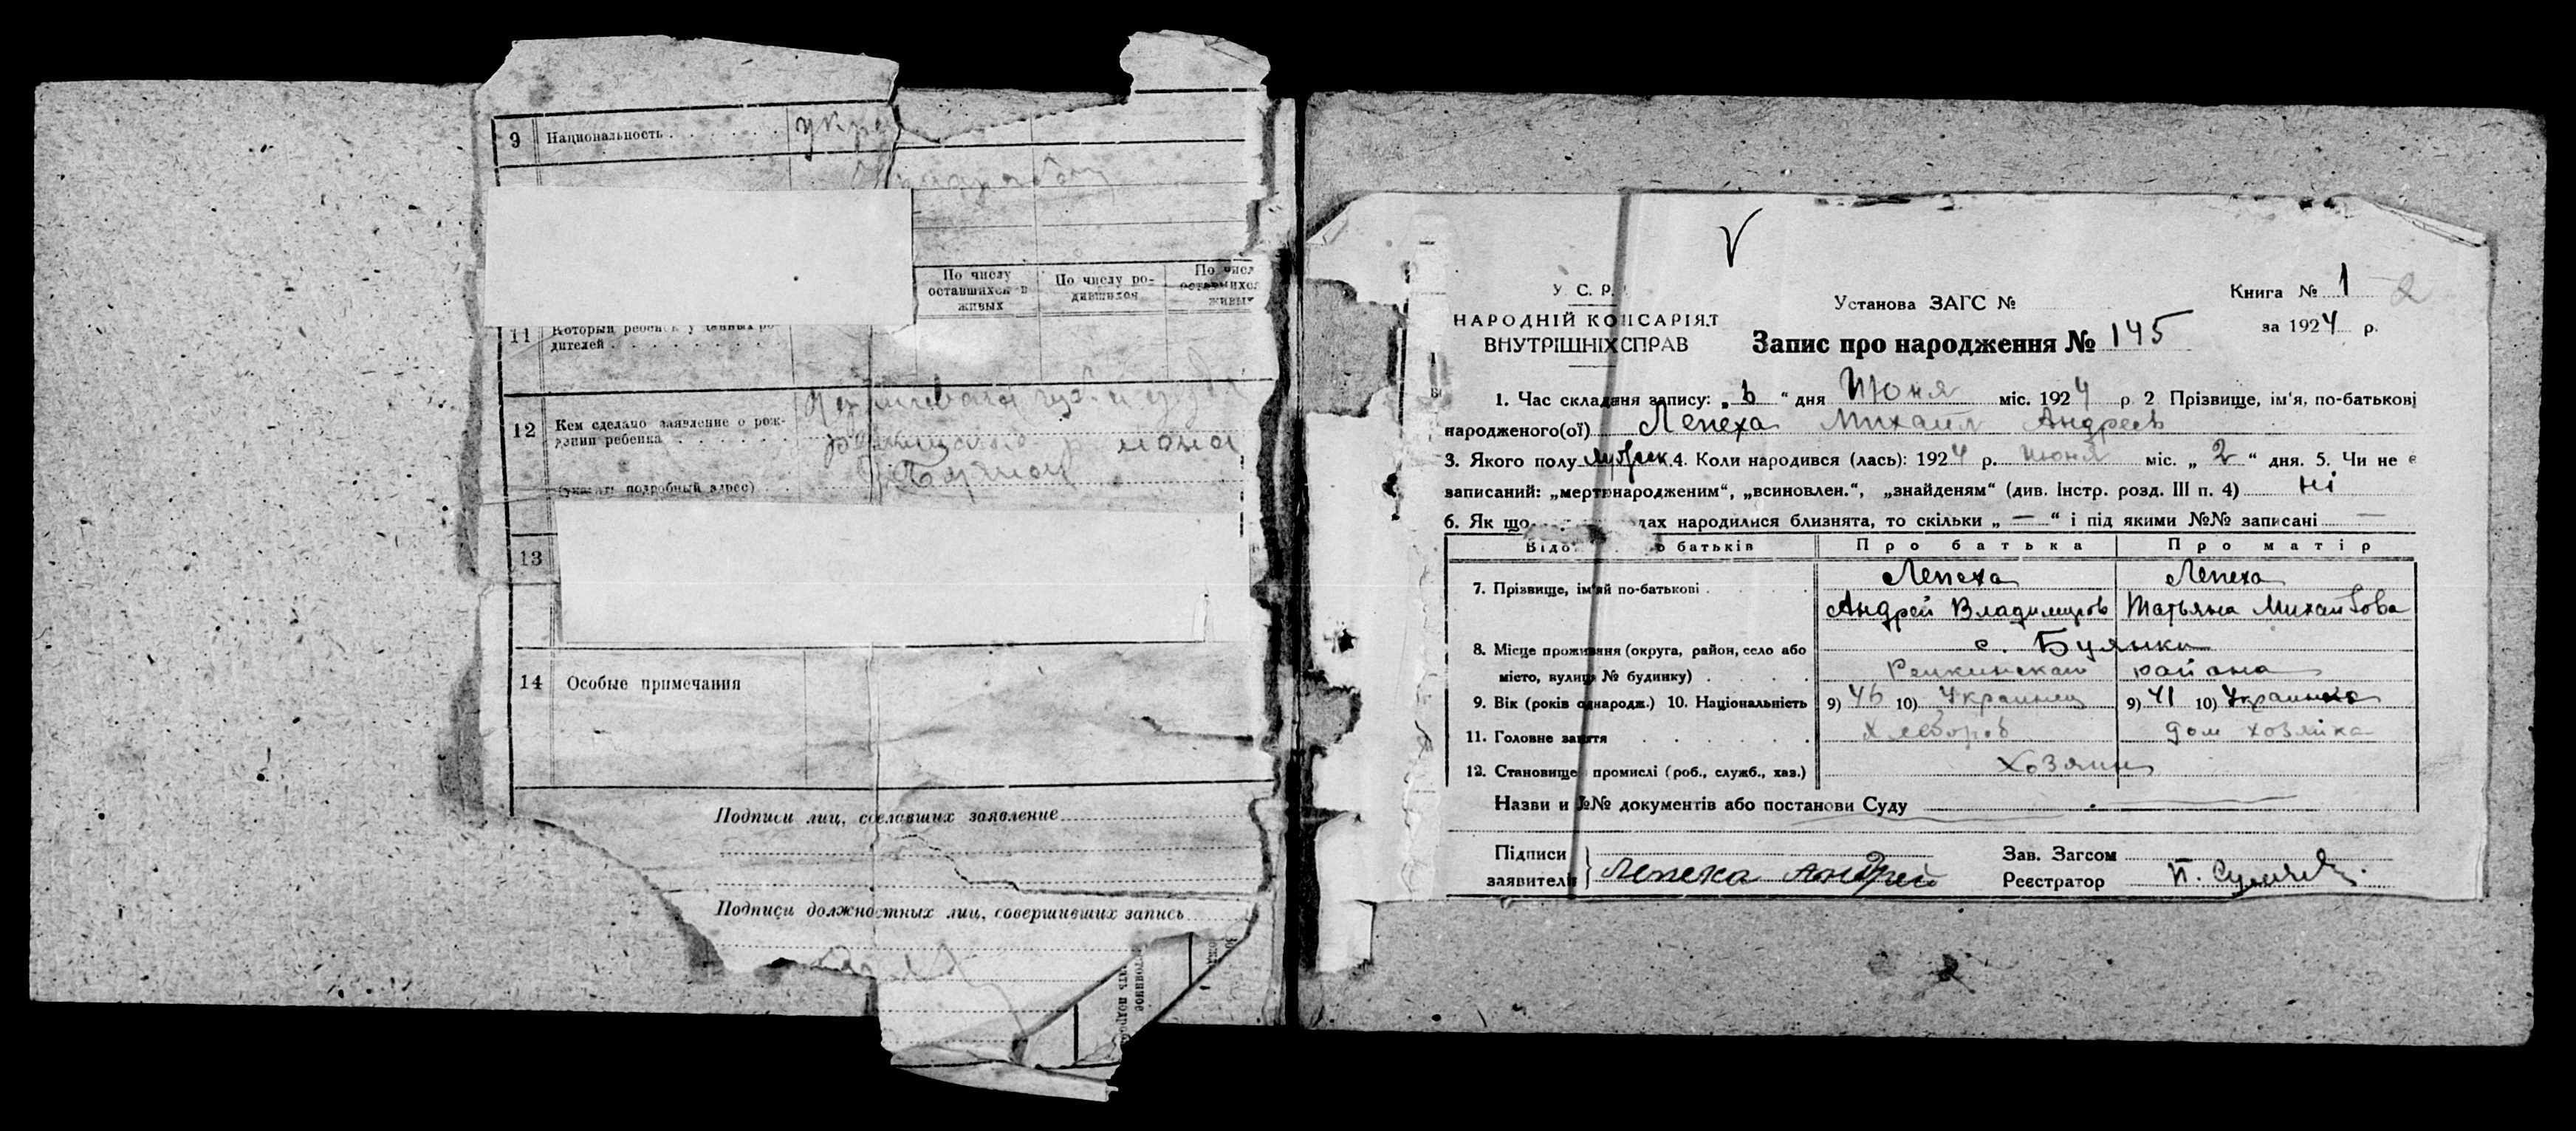 9 Национальность
По числу оставшихся в живых
По числу родившихся
11 Который ребенок у данных родителей
12 Кем сделано заявление о рождении ребенка
(указать подробный адрес)
13
14 Особые примечания
Подписи лиц, сделавших заявление
Подписи должностных лиц, совершивших запись
У. С. Р. Р.
НАРОДНІЙ КОМІСАРІЯТ
ВНУТРІШНІХ СПРАВ
Установа ЗАГС №
Книга № 1 2
за 1924 р.
Запис про народження № 145
1. Час складання запису: „6“ дня Июня міс. 1924 р 2 Прізвище, ім'я, по-батькові
народженого(ої) Лепеха Михаил Андреев
3. Якого полу мужеск. 4. Коли народився (лась): 1924 р. июня міс. „2“ дня. 5. Чи не є
записаний: „мертвонародженим“, „всиновлен.“, „знайденям“ (див. Інстр. розд. III п. 4) ні
6. Як що дах народилися близнята, то скільки „—“ і під якими №№ записані —
Відо о батьків Про батька Про матір
7. Прізвище, ім'я й по-батькові Лепеха Лепеха
Андрей Владимиров Татьяна Михайлова
8. Місце проживання (округа, район, село або с. Буянки
місто, вулиця № будинку) Репкинского района
9. Вік (років однародж.) 10. Національність 9) 46 10) Украинец 9) 41 10) Украинка
11. Головне заняття Хлебороб дом хозяйка
12. Становище в промислі (роб., служб., хаз.) Хозяин
Назви и №№ документів або постанови Суду —
Підписи
заявителів Лепеха Андрей
Зав. Загсом
Реєстратор П.